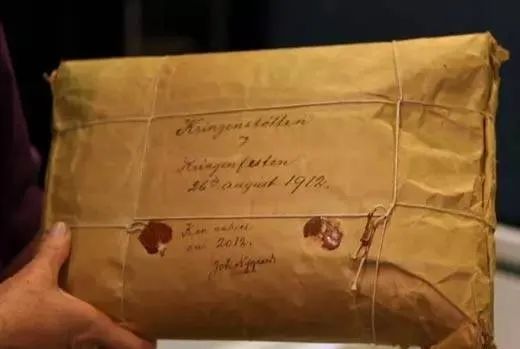 Kringenstötten
&
Kringenfesten
26de august 1912.
Kan aabnes
om 2012.
Joh Nygaard